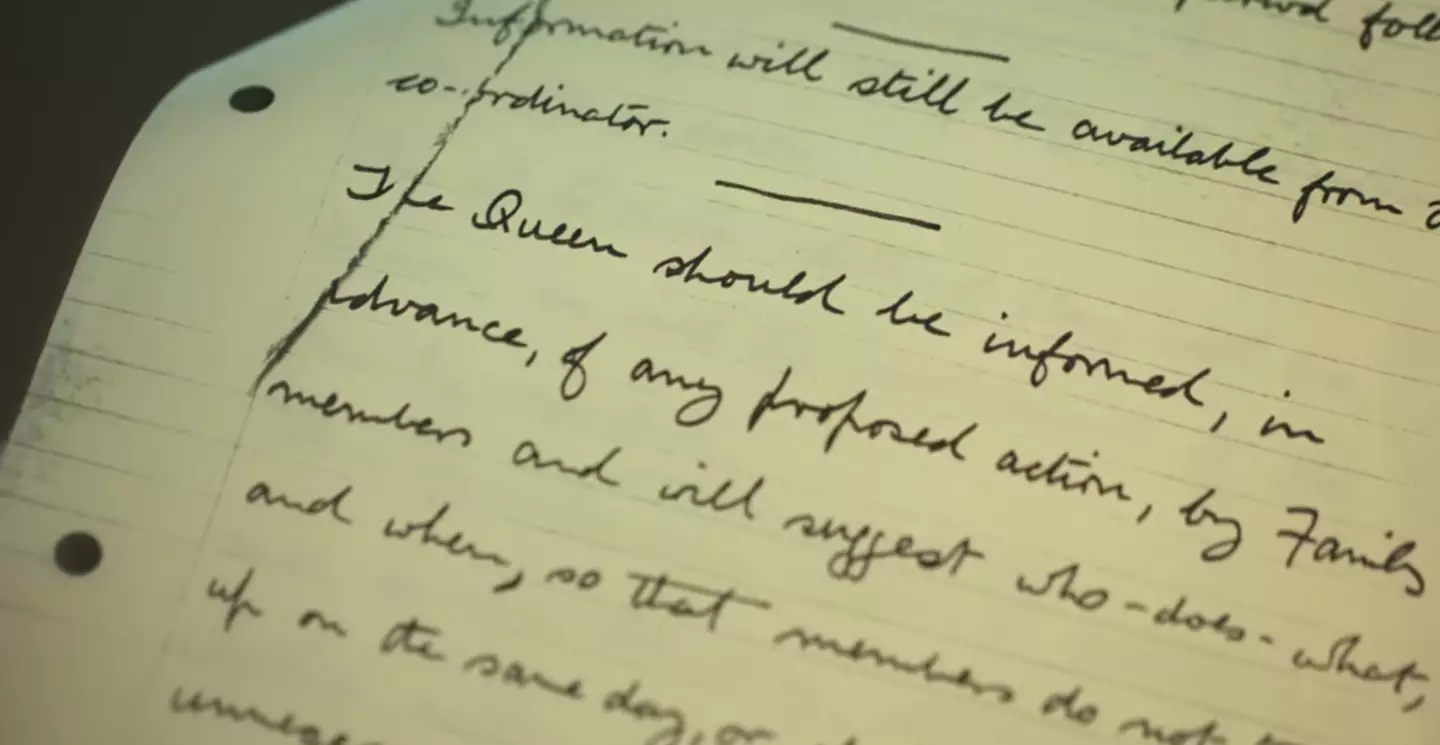 foll
Information will still be available from
co-ordinator.
The Queen should be informed, in
advance, of any proposed action, by Family
members and will suggest who-does-what,
and when, so that members do not
up on the same day, or
unnece